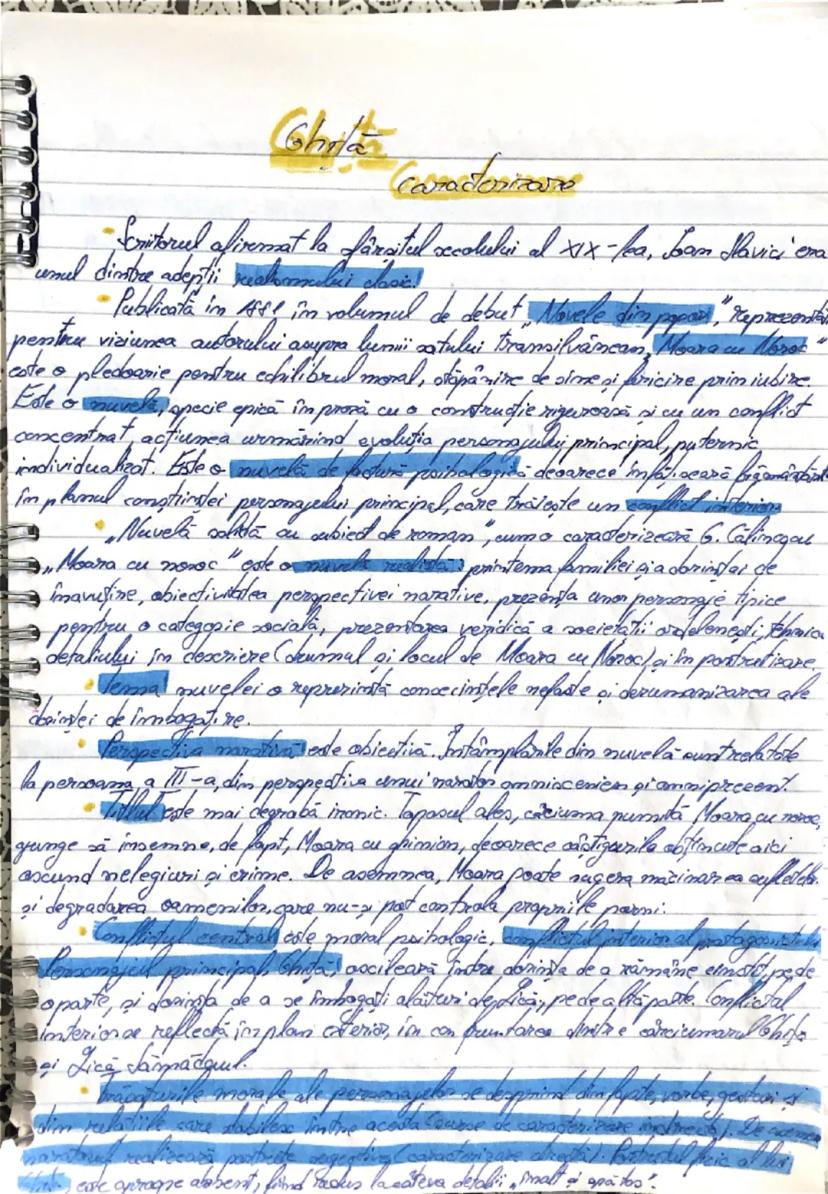 Ghiță
Caracterizare
Scriitorul afirmat la sfârșitul secolului al XIX-lea, Ioan Slavici era
unul dintre adepții realismului clasic.
Publicată în 1881 în volumul de debut "Novele din popor", reprezentativ
pentru viziunea autorului asupra lumii satului transilvănean, "Moara cu Noroc"
este o pledoarie pentru echilibrul moral, stăpânire de sine și fericire prin iubire.
Este o nuvelă, specie epică în proză cu o construcție riguroasă și cu un conflict
concentrat, acțiunea urmărind evoluția personajului principal, puternic
individualizat. Este o nuvelă de factură psihologică deoarece înfățișează frământările
în planul conștiinței personajului principal, care trăiește un conflict interior.
„Nuvelă solidă cu subiect de roman", cum o caracterizează G. Călinescu
„Moara cu noroc" este o nuvelă realistă prin tema familiei și a dorinței de
înavuțire, obiectivitatea perspectivei narative, prezența unor personaje tipice
pentru o categorie socială, prezentarea veridică a societății ardelenești, tehnica
detaliului în descriere (drumul și locul de Moara cu Noroc) și în portretizare.
Tema nuvelei o reprezintă consecințele nefaste și dezumanizarea ale
dorinței de îmbogățire.
Perspectiva narativă este obiectivă. Întâmplările din nuvelă sunt relatate
la persoana a III-a, din perspectiva unui narator omniscient și omniprezent.
Titlul este mai degrabă ironic. Toposul ales, cârciuma numită Moara cu noroc,
ajunge să însemne, de fapt, Moara cu ghinion, deoarece câștigurile obținute aici
ascund nelegiuri și crime. De asemnea, Moara poate sugera măcinarea sufletelor
și degradarea oamenilor, care nu-și pot controla propriile porniri.
Conflictul central este moral psihologic, conflictul interior al protagonistului.
Personajul principal, Ghiță, oscilează între dorința de a rămâne cinstit, pe de
o parte, și dorința de a se îmbogăți alături de Lică, pe de altă parte. Conflictul
interior se reflectă în plan exterior, în confruntarea dintre cârciumarul Ghiță
și Lică Sămădăul.
Trăsăturile morale ale personajelor se desprind din fapte, vorbe, gesturi și
din relațiile care stabilesc între acesta (surse de caracterizare indirectă). De asemenea
naratorul realizează portrete sugestive (caracterizare directă). Portretul fizic al lui
Ghiță, este aproape absent, fiind redus la câteva detalii „înalt și spătos".